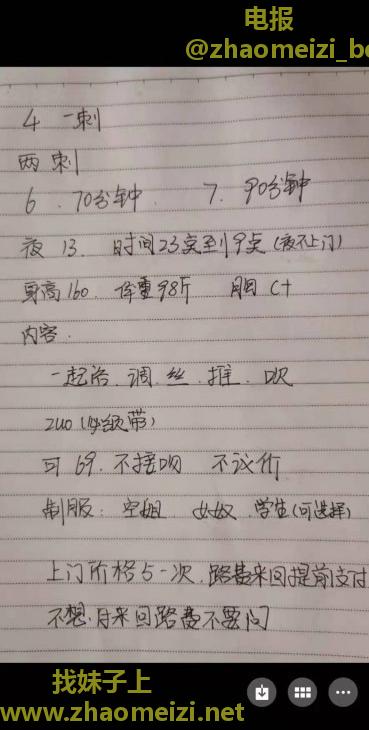 电报
@zhaomeizi_b
4 一刺
两刺
6. 70分钟. 7. 90分钟
夜 13. 时间23点到9点(夜不上门)
身高160. 体重98斤 胸 C+
内容.
一起浴. 调. 丝. 推. 吹
zuo(必须带)
可 69. 不接吻 不议价
制服: 空姐 女奴 学生(可选择)
上门价格5一次. 路费来回提前支付
不想付来回路费不要问
找妹子上
www.zhaomeizi.net